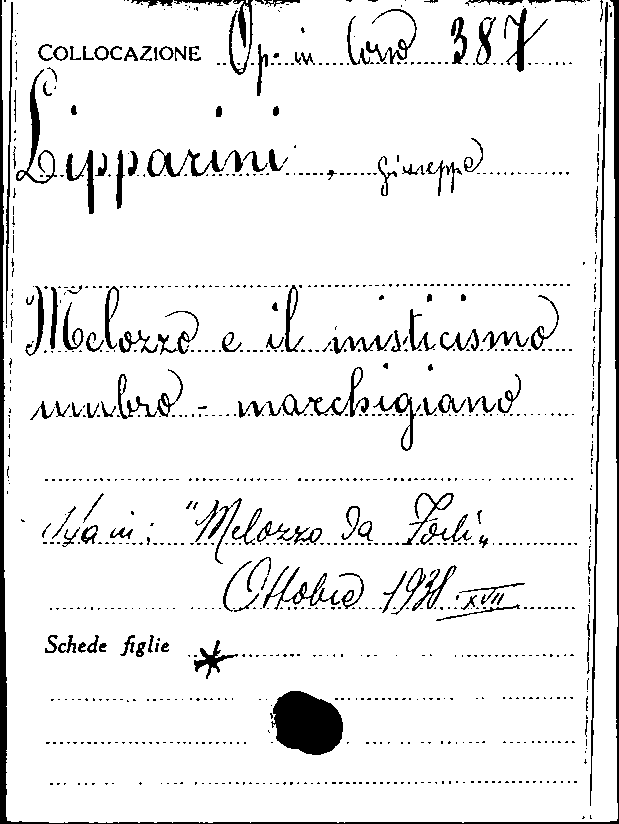 COLLOCAZIONE Op. in Corso 387
Lipparini, Giuseppe
Melozzo e il misticismo
umbro - marchigiano
Sta in: "Melozzo da Forlì„
Ottobre 1938 XVII
Schede figlie *